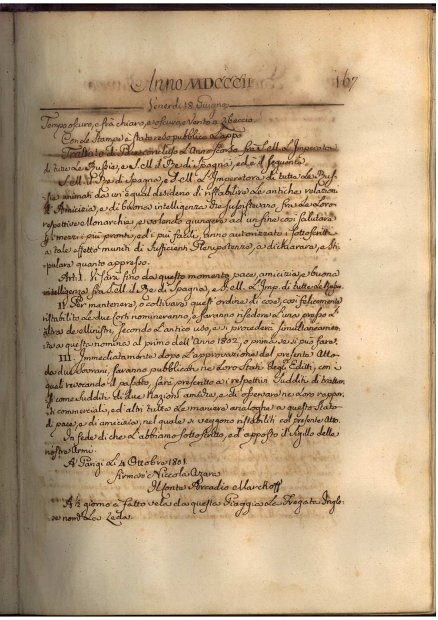 Anno MDCCCII 167
Venerdi 18 Giugno
Tempo oscuro, e frà chiaro, e oscuro, e vento a Libeccio
Con le Stampe è stato reso pubblico l'appo
Trattato di Pace concluso l'Anno scorso fra S. M. L'Imperator
di tutte le Russie, e S. M. il Re di Spagna, ed è il seguente
S. M. il Re di Spagna, e S. M. L'Imperatore di tutte le Rus
sie animati da un'egual desiderio di ristabilire le antiche relazioni
d'Amicizia, e di buona intelligenza che sussistevano, fra le Loro
respettive Monarchie e volendo giungere ad un fine così salutare
p. i mezzi più pronti, ed i più facili, anno autorizzato i sottoscritti
a tale effetto muniti di sufficienti Plenipotenze, a dichiarare, e sti
pulare quanto appresso.
Art. I. Vi sarà fino da questo momento pace, amicizia, e buona
intelligenza fra S. M. il Re di Spagna, e S. M. L'Imp. di tutte le Russie
II. Per mantenere, e coltivare quest'ordine di cose, così felicemente
ristabilito le due Corti nomineranno, e faranno risedere l'uno presso l'
altra de Ministri, secondo l'antico uso, e si procederà simultaneamen
te a questa nomina al primo dell'Anno 1802, o prima se si può fare.
III. Immediatamente dopo l'approvazione del presente Atto
da due Sovrani, saranno pubblicati ne Loro Stati degl'Editti, con i
quali revocando il passato, sarà prescritto a' respettivi Sudditi di trattar
si come sudditi di due Nazioni amiche, e di osservare ne Loro rappor
ti commerciale, ed altri tutte le maniere analoghe a questo stato
di pace, e di amicizia, nel quale si vengono ristabiliti col presente Atto.
In fede di che l'abbiamo sottoscritto, ed apposto il Sigillo delle
nostre Armi.
A Parigi Le 4 Ottobre 1801
Firmato Niccola Azara
Il Conte Arcadio Marckoff
A giorno à fatto vela da questa Piaggia la Fregata Ingle
se nord La Leda.